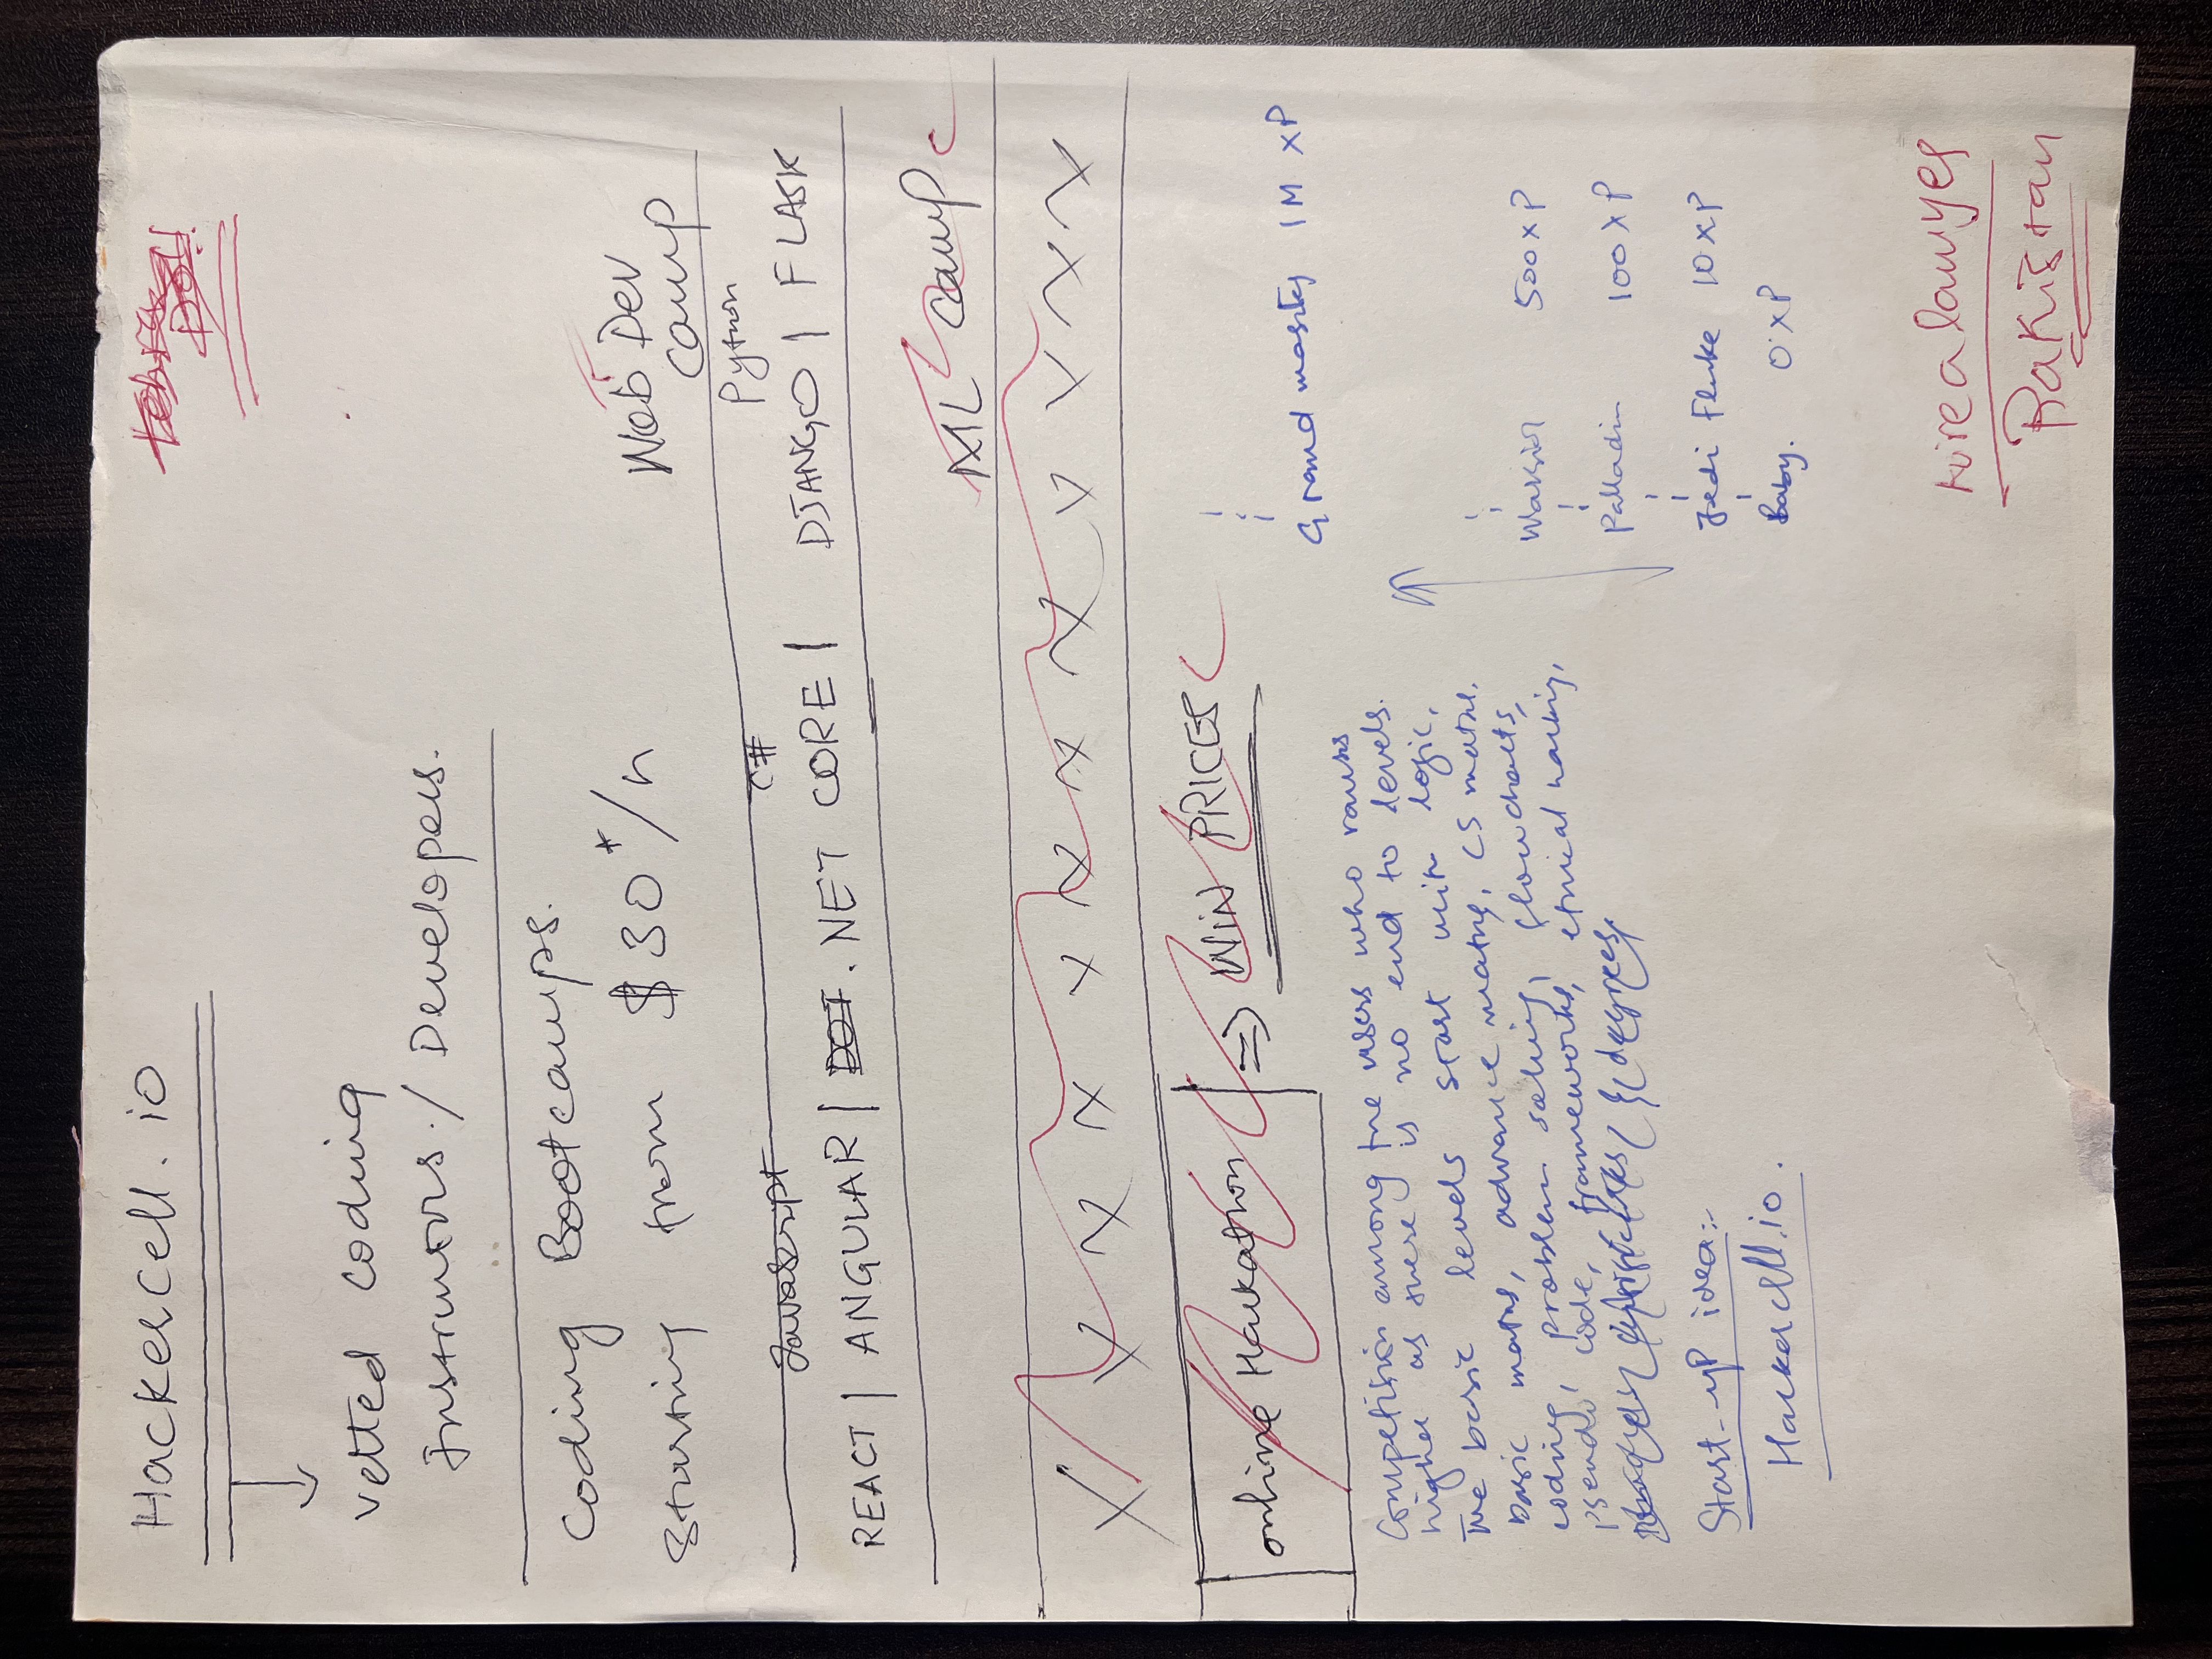 Hackercell.io
vetted coding
Instructors./Developers.
Coding Bootcamps.
Starting from $30+/h
Web Dev
Camp
Javascript C# Python
REACT | ANGULAR | DOT .NET CORE | DJANGO | FLASK
ML Camp
X X X X X X X X X X X X X
online Hackathon | => WIN PRICES
Competition among the users who ranks
higher as there is no end to levels.
The basic levels start with logic,
basic maths, advance maths, CS maths,
coding, problem solving, flowcharts,
Pseudo code, frameworks, ethical hacking,
degrees
Start-up idea:-
Hackercell.io.
Grand mastery 1M XP
Warrior 500XP
Palladin 100XP
Jedi Fluke 10XP
Baby. 0XP
Hirealawyer
Pakistan